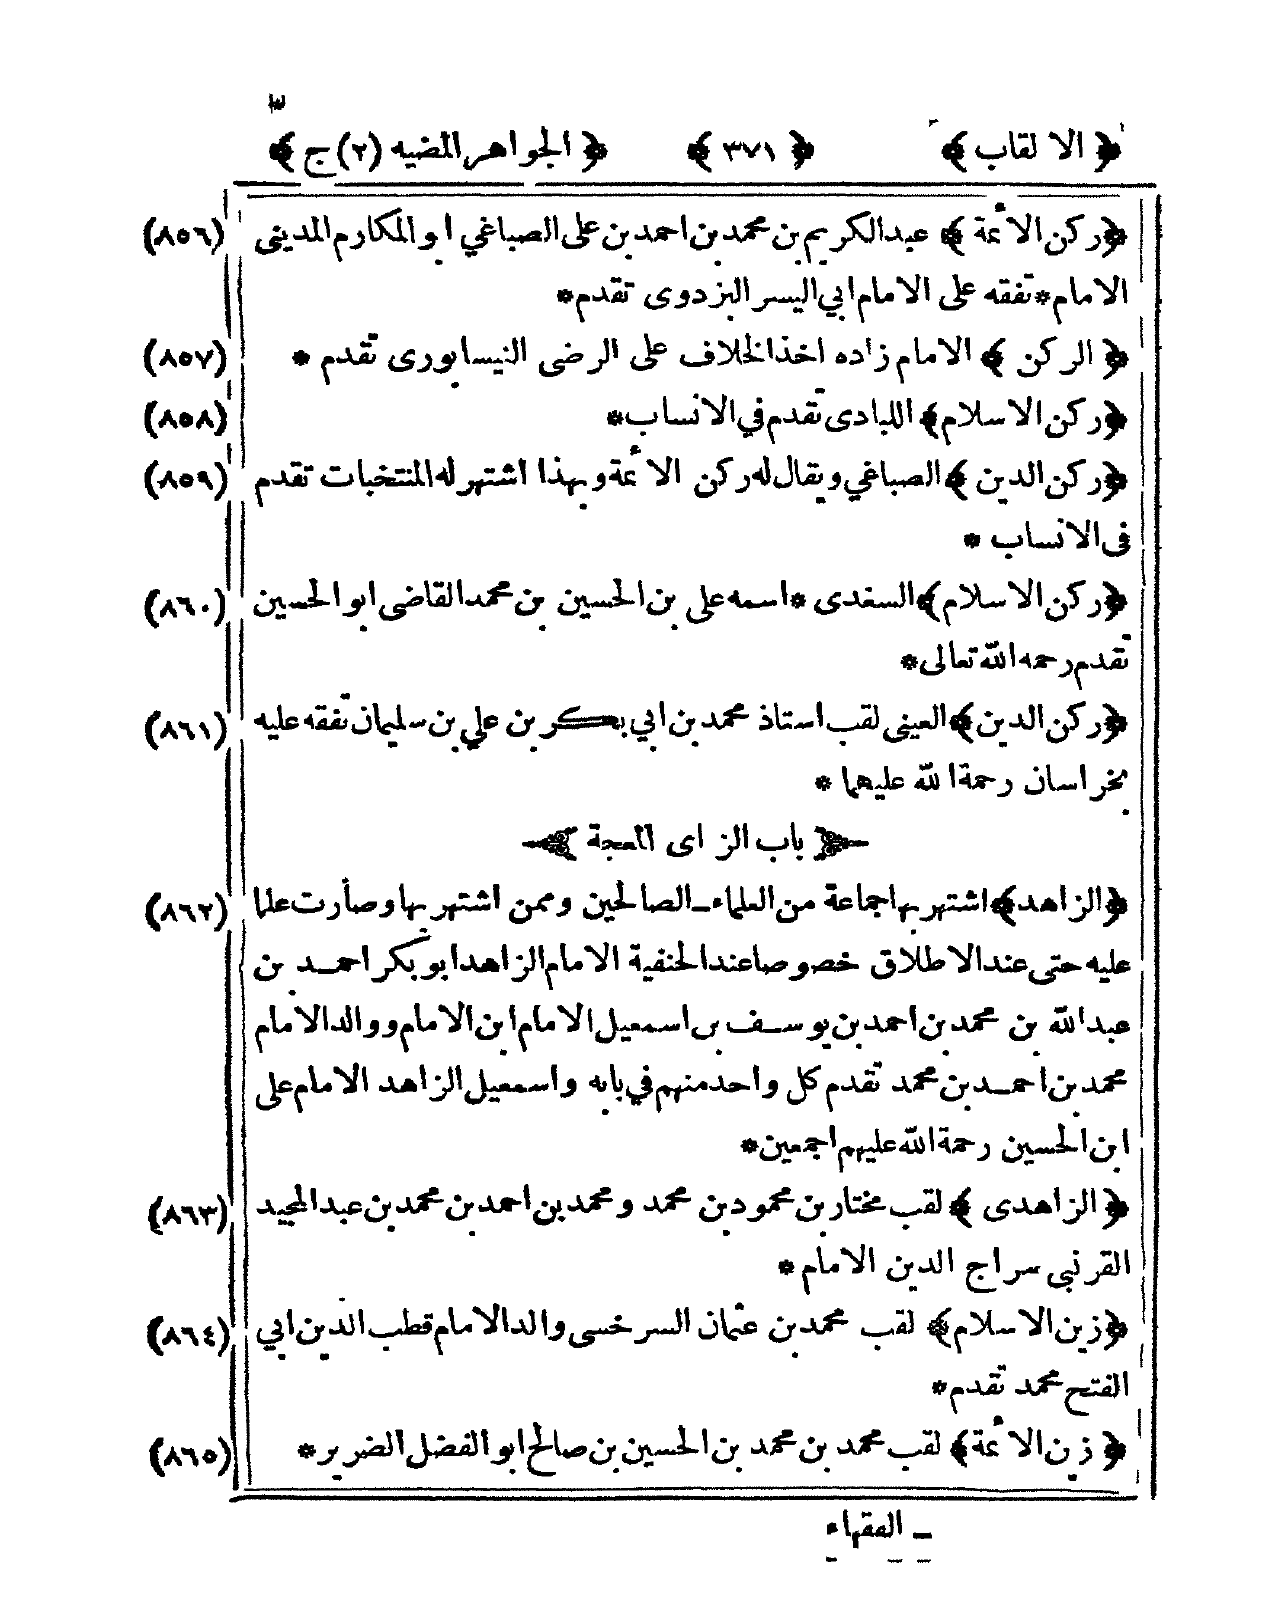 ﴿ الالقاب ﴾ ﴿ ٣٧١ ﴾ ﴿ الجواهر المضيه (٢) ج ﴾
﴿ركن الائمة﴾ عبدالكريم بن محمد بن احمد بن على الصباغي ابو المكارم المديني (٨٥٦)
الامام * تفقه على الامام ابي اليسر البزدوى تقدم *
﴿ الركن ﴾ الامام زاده اخذ الخلاف على الرضى النيسابورى تقدم * (٨٥٧)
﴿ركن الاسلام﴾ اللبادى تقدم في الانساب * (٨٥٨)
﴿ركن الدين﴾ الصباغي ويقال له ركن الائمة وبهذا اشتهر له المنتخبات تقدم (٨٥٩)
فى الانساب *
﴿ركن الاسلام﴾ السغدى * اسمه على بن الحسين بن محمد القاضى ابو الحسين (٨٦٠)
تقدم رحمه الله تعالى *
﴿ركن الدين﴾ العينى لقب استاذ محمد بن ابي بكر بن علي بن سليمان تفقه عليه (٨٦١)
بخراسان رحمة الله عليهما *
باب الزاى المعجمة
﴿الزاهد﴾ اشتهر بها جماعة من العلماء ـ الصالحين وممن اشتهر بها وصارت علما (٨٦٢)
عليه حتى عند الاطلاق خصوصا عند الحنفية الامام الزاهد ابو بكر احمد بن
عبد الله بن محمد بن احمد بن يوسف بن اسمعيل الامام ابن الامام ووالد الامام
محمد بن احمد بن محمد تقدم كل واحد منهم في بابه واسمعيل الزاهد الامام على
ابن الحسين رحمة الله عليهم اجمعين *
﴿الزاهدى﴾ لقب مختار بن محمود بن محمد ومحمد بن احمد بن محمد بن عبد المجيد (٨٦٣)
القرنبي سراج الدين الامام *
﴿زين الاسلام﴾ لقب محمد بن عثمان السرخسى والد الامام قطب الدين ابي (٨٦٤)
الفتح محمد تقدم *
﴿زين الائمة﴾ لقب محمد بن محمد بن الحسين بن صالح ابو الفضل الضرير * (٨٦٥)
ـ الفقهاء